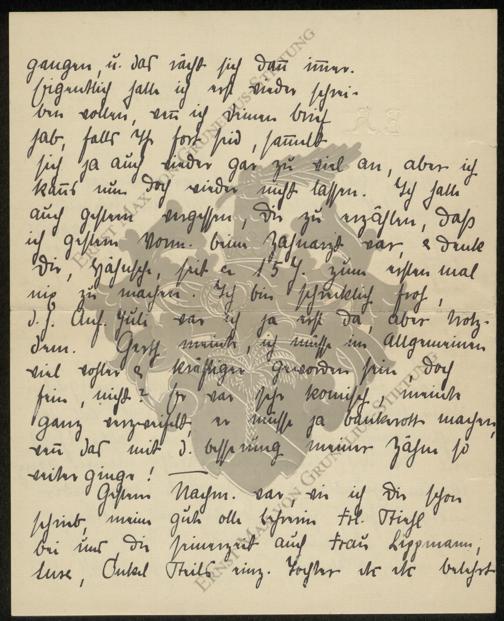 gangen, u. das rächt sich dann immer.
Eigentlich hatte ich erst wieder schrei-
ben wollen, wenn ich Deinen Brief
hab, falls Ihr fort seid, sammelt
sich ja auch wieder gar zu viel an, aber ich
kanns nun doch wieder nicht lassen. Ich hatte
auch gestern vergessen, Dir zu erzählen, daß
ich gestern Vorm. beim Zahnarzt war, & denk
Dir, Hänsche, seit ca 15 J. zum ersten mal
nix zu machen. Ich bin schrecklich froh,
d. h. Anf. Juli war ich ja erst da, aber trotz-
dem. Gerth meinte, ich müsse im Allgemeinen
viel wohler & kräftiger geworden sein, doch
fein, nicht? Er war sehr komisch, meinte
ganz verzweifelt, er müsse ja bankerott machen,
wenn das mit d. Besserung meiner Zähne so
weiter ginge! —
Gestern Nachm. war, wie ich Dir schon
schrieb, meine gute olle Lehrerin Frl.
bei uns die seinerzeit auch Frau Lippmann,
Onkel einz. Tochter etc etc belehrt
ERNST MAX VON GRUNELIUS-STIFTUNG
ERNST MAX VON GRUNELIUS-STIFTUNG